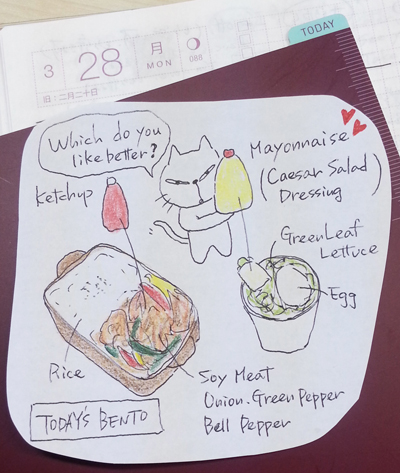 TODAY
3 28 月 MON 088
旧:二月二十日
Which do you
like better?
Mayonnaise
(Caesar Salad
Dressing)
Ketchup
GreenLeaf
Lettuce
Egg
Rice
Soy Meat
Union. Green Pepper
Bell Pepper
TODAY'S BENTO